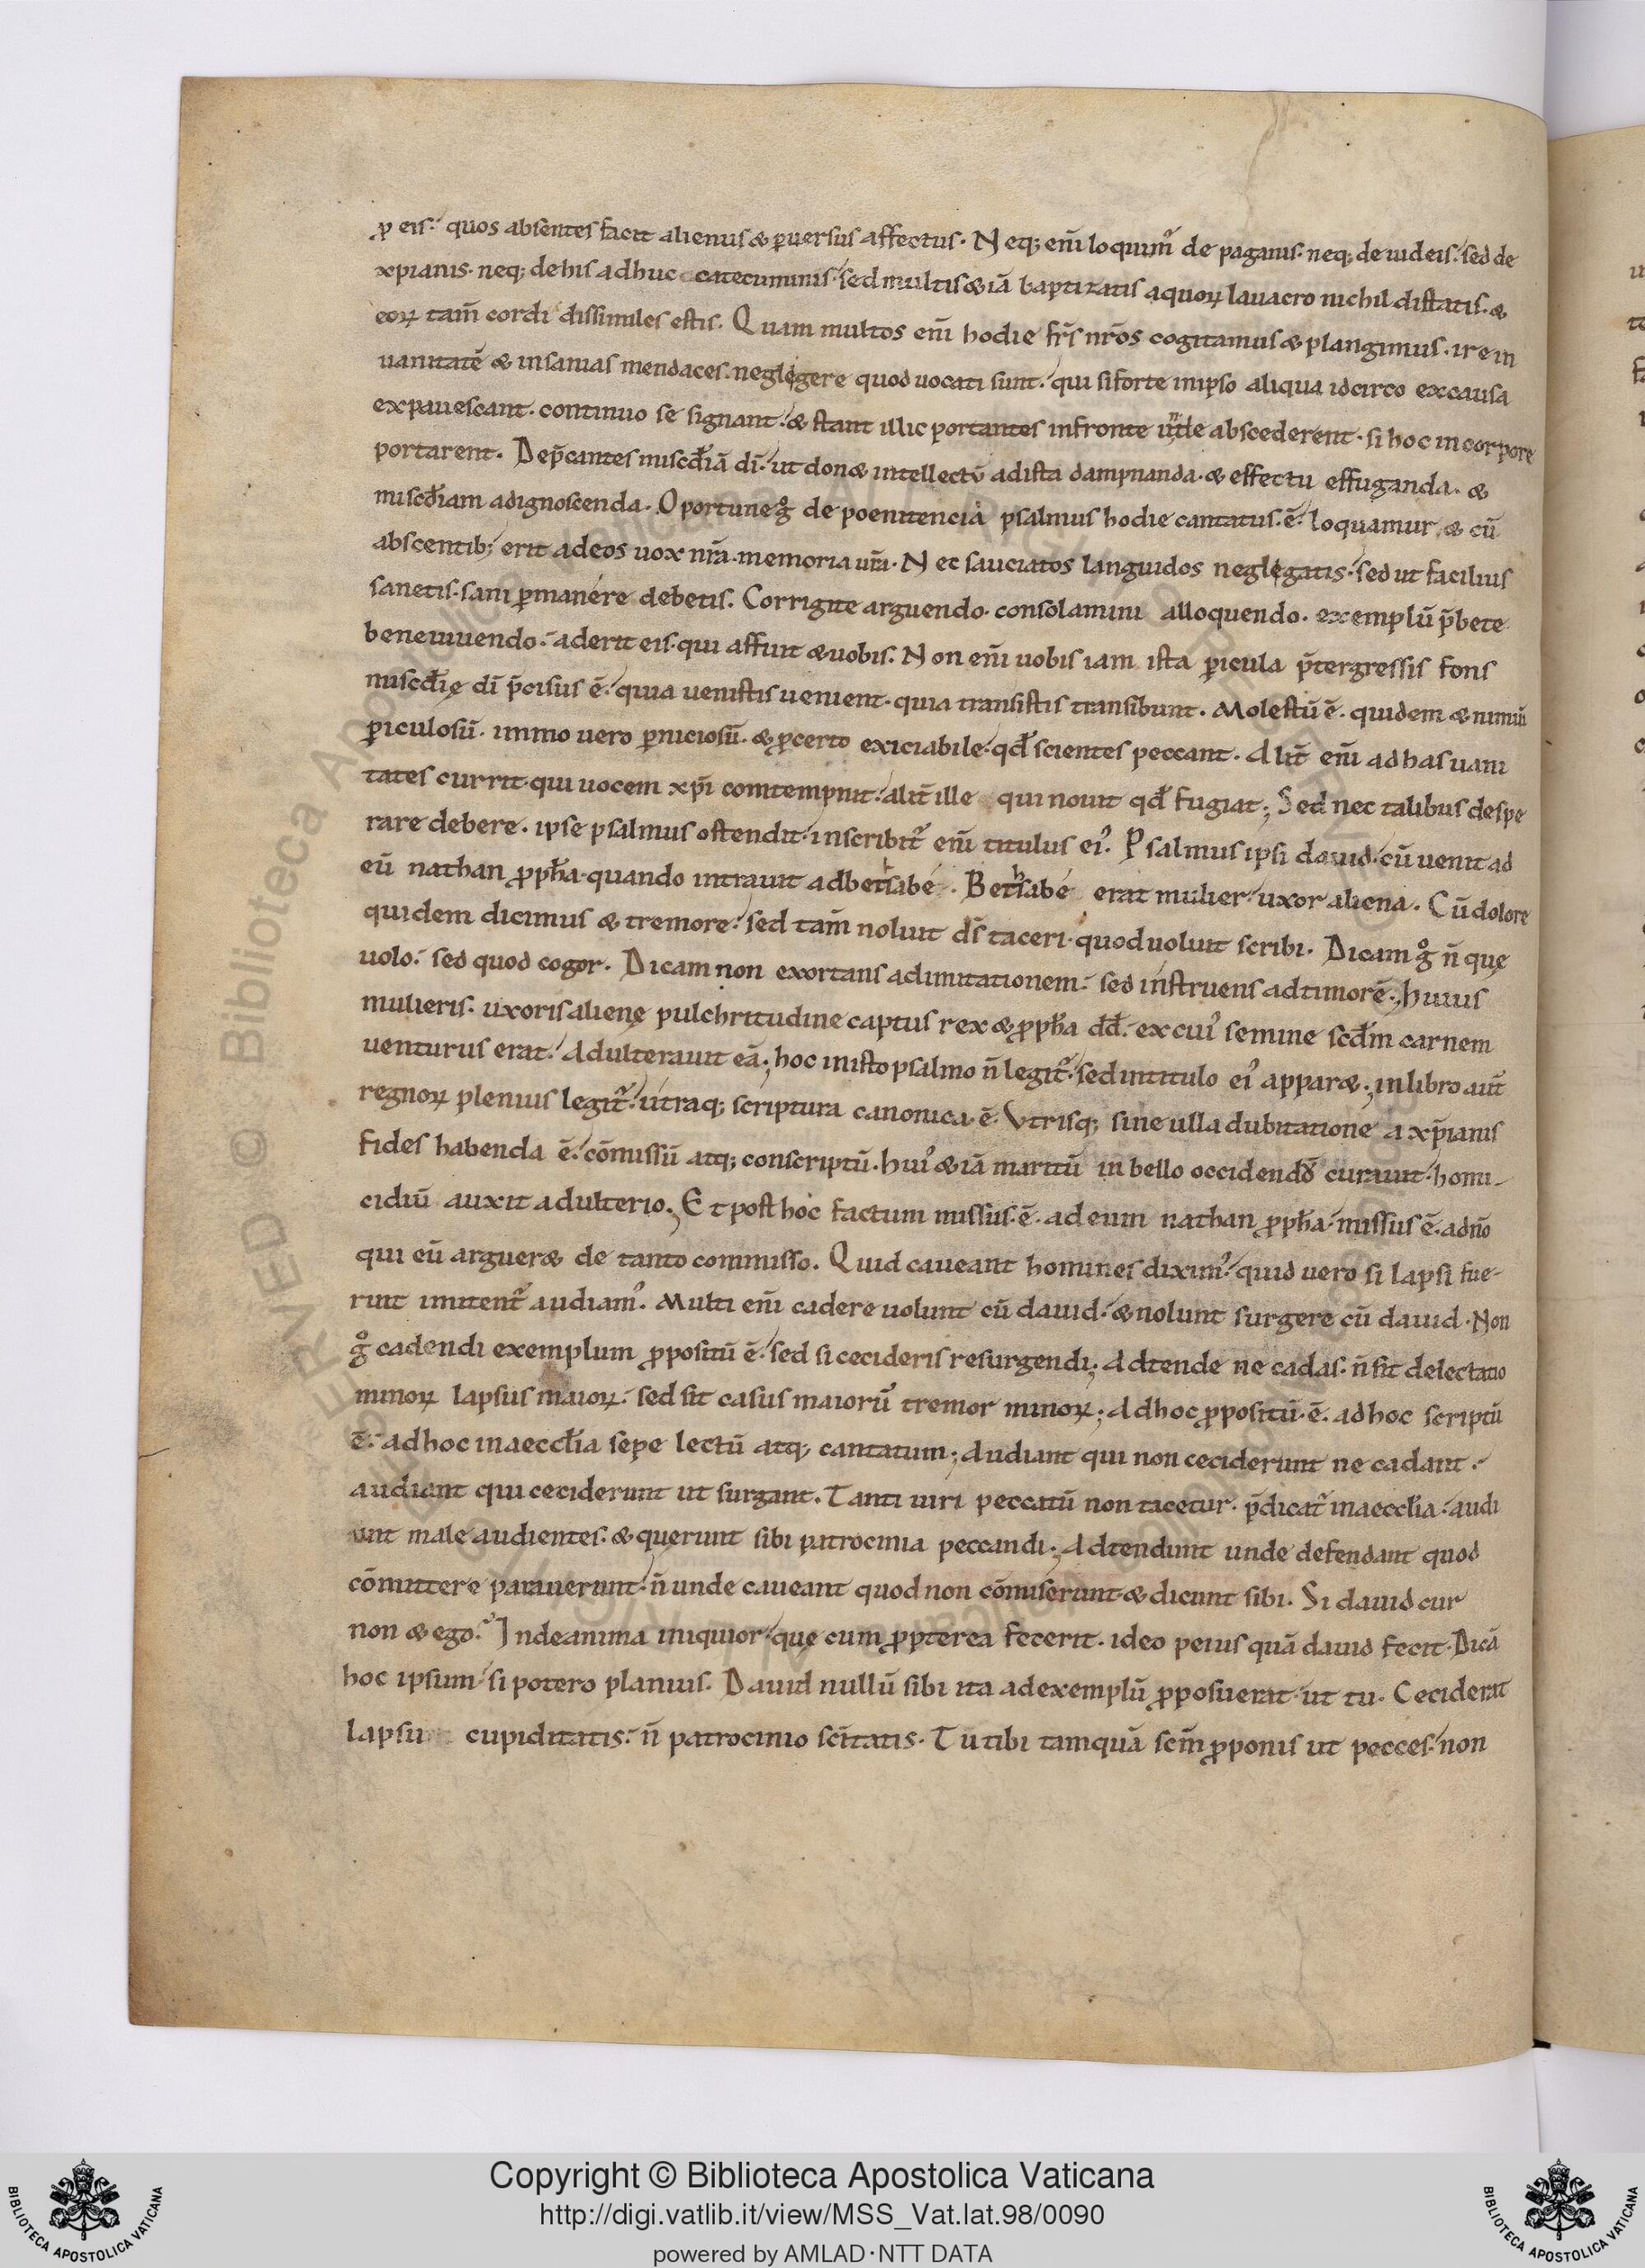 ꝓ eis. quos absentes facit alienus & ꝑuersus affectus. Neq; eni̅ loquim᷑ de paganis. neq; de iudeis. sed de
xpianis. neq; de his adhuc catecuminis. sed multis & iā baptizatis a quoꝝ lauacro nichil distatis. &
eoꝝ tam̅ cordi dissimiles estis. Quam multos eni̅ hodie fr̅s nr̅os cogitamus & plangimus. ire in
uanitatē & insanias mendaces. neglegere quod uocati sunt. qui si forte in ipso aliqua idcirco ex causa
expauescant. continuo se signant. & stant illic portantes in fronte unde abscederent. si hoc in corpore
portarent. Dep̅cantes misc̅diā di̅. ut don& intellectū ad ista dampnanda. & effectu effuganda. &
misc̅diam ad ignoscenda. Oportune gͦ de poenitencia psalmus hodie cantatus. ē. loquamur & cū
abscentib; erit ad eos uox nr̅a. memoria ur̅a. Nec sauciatos languidos neglegatis. sed ut facilius
sanetis. sani ꝑmanere debetis. Corrigite arguendo. consolamini alloquendo. exemplū p̅bete
bene uiuendo. aderit eis. qui affuit & uobis. Non eni̅ uobis iam ista ꝑicula p̅tergressis fons
misc̅dię di̅ p̅cisus ē. quia uenistis uenient. quia transistis transibunt. Molestū ē. quidem & nimiū
ꝑiculosū. immo uero ꝑniciosū. & ꝑcerto exiciabile. qd̅ scientes peccant. Alit̅ eni̅ ad has uani
tates currit. qui uocem xp̅i comtempnit. alit̅ ille qui nouit qd̅ fugiat; Sed nec talibus despe
rare debere. ipse psalmus ostendit. inscribit᷑ eni̅ titulus ei᷒. Psalmus ipsi dauid. cū uenit ad
eū nathan ꝓph̅a. quando intrauit ad bethsabe. Bethsabe erat mulier. uxor aliena. Cū dolore
quidem dicimus & tremore. sed tam̅ noluit ds̅ taceri. quod uoluit scribi. Dicam gͦ n̅ que
uolo. sed quod cogor. Dicam non exortans ad imitationem. sed instruens ad timorē. huius
mulieris. uxoris alienę pulchritudine captus rex & ꝓph̅a dd̅. ex cui᷒ semine scd̅m carnem
uenturus erat. Adulterauit eā; hoc in isto psalmo n̅ legit᷑. sed in titulo ei᷒ appar&; in libro aut̅
regnoꝝ plenius legit᷑. utraq; scriptura canonica. ē. Vtrisq; sine ulla dubitatione a xp̅ianis
fides habenda ē. cōmissū atq; conscriptū. hui᷒ & iā maritū in bello occidendū curauit. homi-
cidiū auxit adulterio; Et post hoc factum missus. ē. ad eum nathan ꝓph̅a. missus ē. a dn̅o
qui eū arguer& de tanto commisso. Quid caueant homines dixim᷒. quid uero si lapsi fue-
rint imitent᷑ audiam᷒. Multi eni̅ cadere uolunt cū dauid. & nolunt surgere cū dauid. Non
gͦ cadendi exemplum ꝓpositū ē. sed si cecideris resurgendi; Adtende ne cadas. n̅ sit delectatio
minoꝝ lapsus maioꝝ. sed sit casus maiorū tremor minoꝝ; Ad hoc ꝓpositū. ē. ad hoc scriptū
ē. ad hoc in aeccl̅ia sepe lectū atq; cantatum; Audiant qui non ceciderunt ne cadant.
audiant qui ceciderunt ut surgant. Tanti uiri peccatū non tacetur. p̅dicat᷑ in aeccl̅ia. audi
unt male audientes. & querunt sibi patrocinia peccandi; Adtendunt unde defendant quod
cōmittere parauerunt. n̅ unde caueant quod non cōmiserunt. & dicunt sibi. Si dauid cur
non & ego? Inde anima iniquior. que cum ꝓpterea fecerit. ideo peius quā dauid fecit. Dicā
hoc ipsum. si potero planius. Dauid nullū sibi ita ad exemplū ꝓposuerat. ut tu. Ceciderat
lapsu cupiditatis. n̅ patrocinio sc̅itatis. Tu tibi tamquā scm̅ ꝓponis ut pecces. non
Copyright © Biblioteca Apostolica Vaticana
http://digi.vatlib.it/view/MSS_Vat.lat.98/0090
powered by AMLAD·NTT DATA
BIBLIOTECA APOSTOLICA VATICANA
BIBLIOTECA APOSTOLICA VATICANA